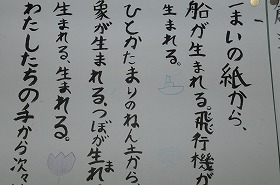 一まいの紙から、
船が生まれる。飛行機が
生まれる。
ひとかたまりのねん土から、
象が生まれる。つぼが生れ
ま
生まれる、生まれる。
わたしたちの手から次々